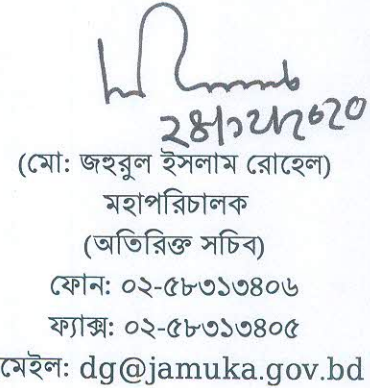 (মো: জহুরুল ইসলাম রোহেল)
মহাপরিচালক
(অতিরিক্ত সচিব)
ফোন: ০২-৫৮৩১৩৪০৬
ফ্যাক্স: ০২-৫৮৩১৩৪০৫
মেইল: dg@jamuka.gov.bd